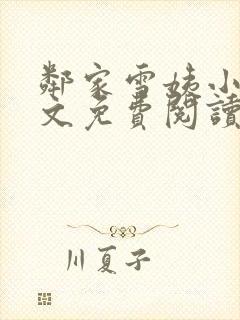 鄰家雪姨小
文免費閱讀
川夏子